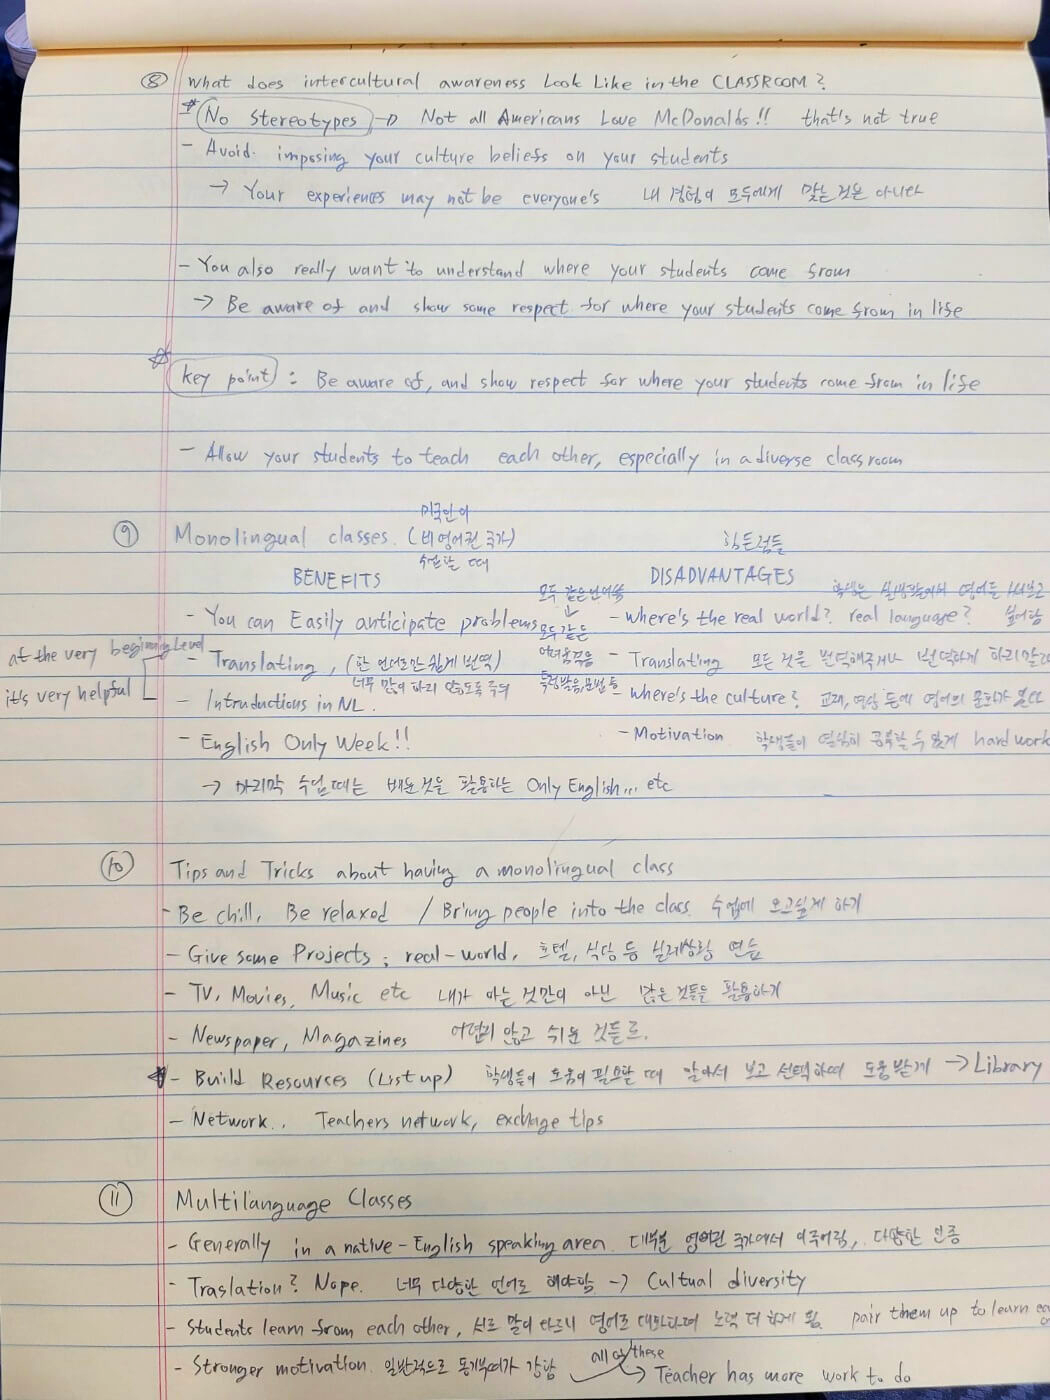 ⑧ What does intercultural awareness Look Like in the CLASSROOM?
* No Stereotypes → Not all Americans Love McDonalds!! that's not true
- Avoid. imposing your culture beliefs on your students
→ Your experiences may not be everyone's 내 경험이 모두에게 맞는 것은 아니다
- You also really want to understand where your students come from
→ Be aware of and show some respect for where your students come from in life
☆ key point : Be aware of, and show respect for where your students come from in life
- Allow your students to teach each other, especially in a diverse classroom
⑨ Monolingual classes. (비영어권 국가)
미국인이
수업할 때
BENEFITS
- You can Easily anticipate problems
모두 같은 언어
모두 같은
어려움 겪음
특정발음, 문법 등
at the very beginning Level
it's very helpful
- Translating, (한 언어로만 쉽게 번역)
너무 많이 하지 않도록 주의
- Intruductions in NL.
- English Only Week!!
→ 마지막 수업 때는 배운 것을 활용하는 Only English... etc
힘든점들
DISADVANTAGES
학생은 실생활에서 영어를
- where's the real world? real language?
- Translating 모든 것을 번역해주거나 번역하게 하지말라
- where's the culture? 교재, 영상 등에 영어의 문화가 없다
- Motivation 학생들이 열심히 공부할 수 있게 hard work
⑩ Tips and Tricks about having a monolingual class
- Be chill, Be relaxed / Bring people into the class. 수업에 오고싶게 하기
- Give some Projects; real-world, 호텔, 식당 등 실제상황 연습
- TV, Movies, Music etc 내가 아는 것만이 아닌 많은 것들을 활용하기
- Newspaper, Magazines 어렵지 않고 쉬운 것들로.
* - Build Resources (List up) 학생들이 도움이 필요할 때 알아서 보고 선택하며 도움받게 → Library
- Network.. Teachers network, exchage tips
⑪ Multilanguage Classes
- Generally in a native-English speaking area. 대부분 영어권 국가에서 이루어짐, 다양한 인종
- Traslation? Nope. 너무 다양한 언어로 해야함 → Cultual diversity
- Students learn from each other, 서로 말이 다르니 영어로 대화하며 노력 더 하게 됨. pair them up to learn
- Stronger motivation. 일반적으로 동기부여가 강함
all of these → Teacher has more work to do